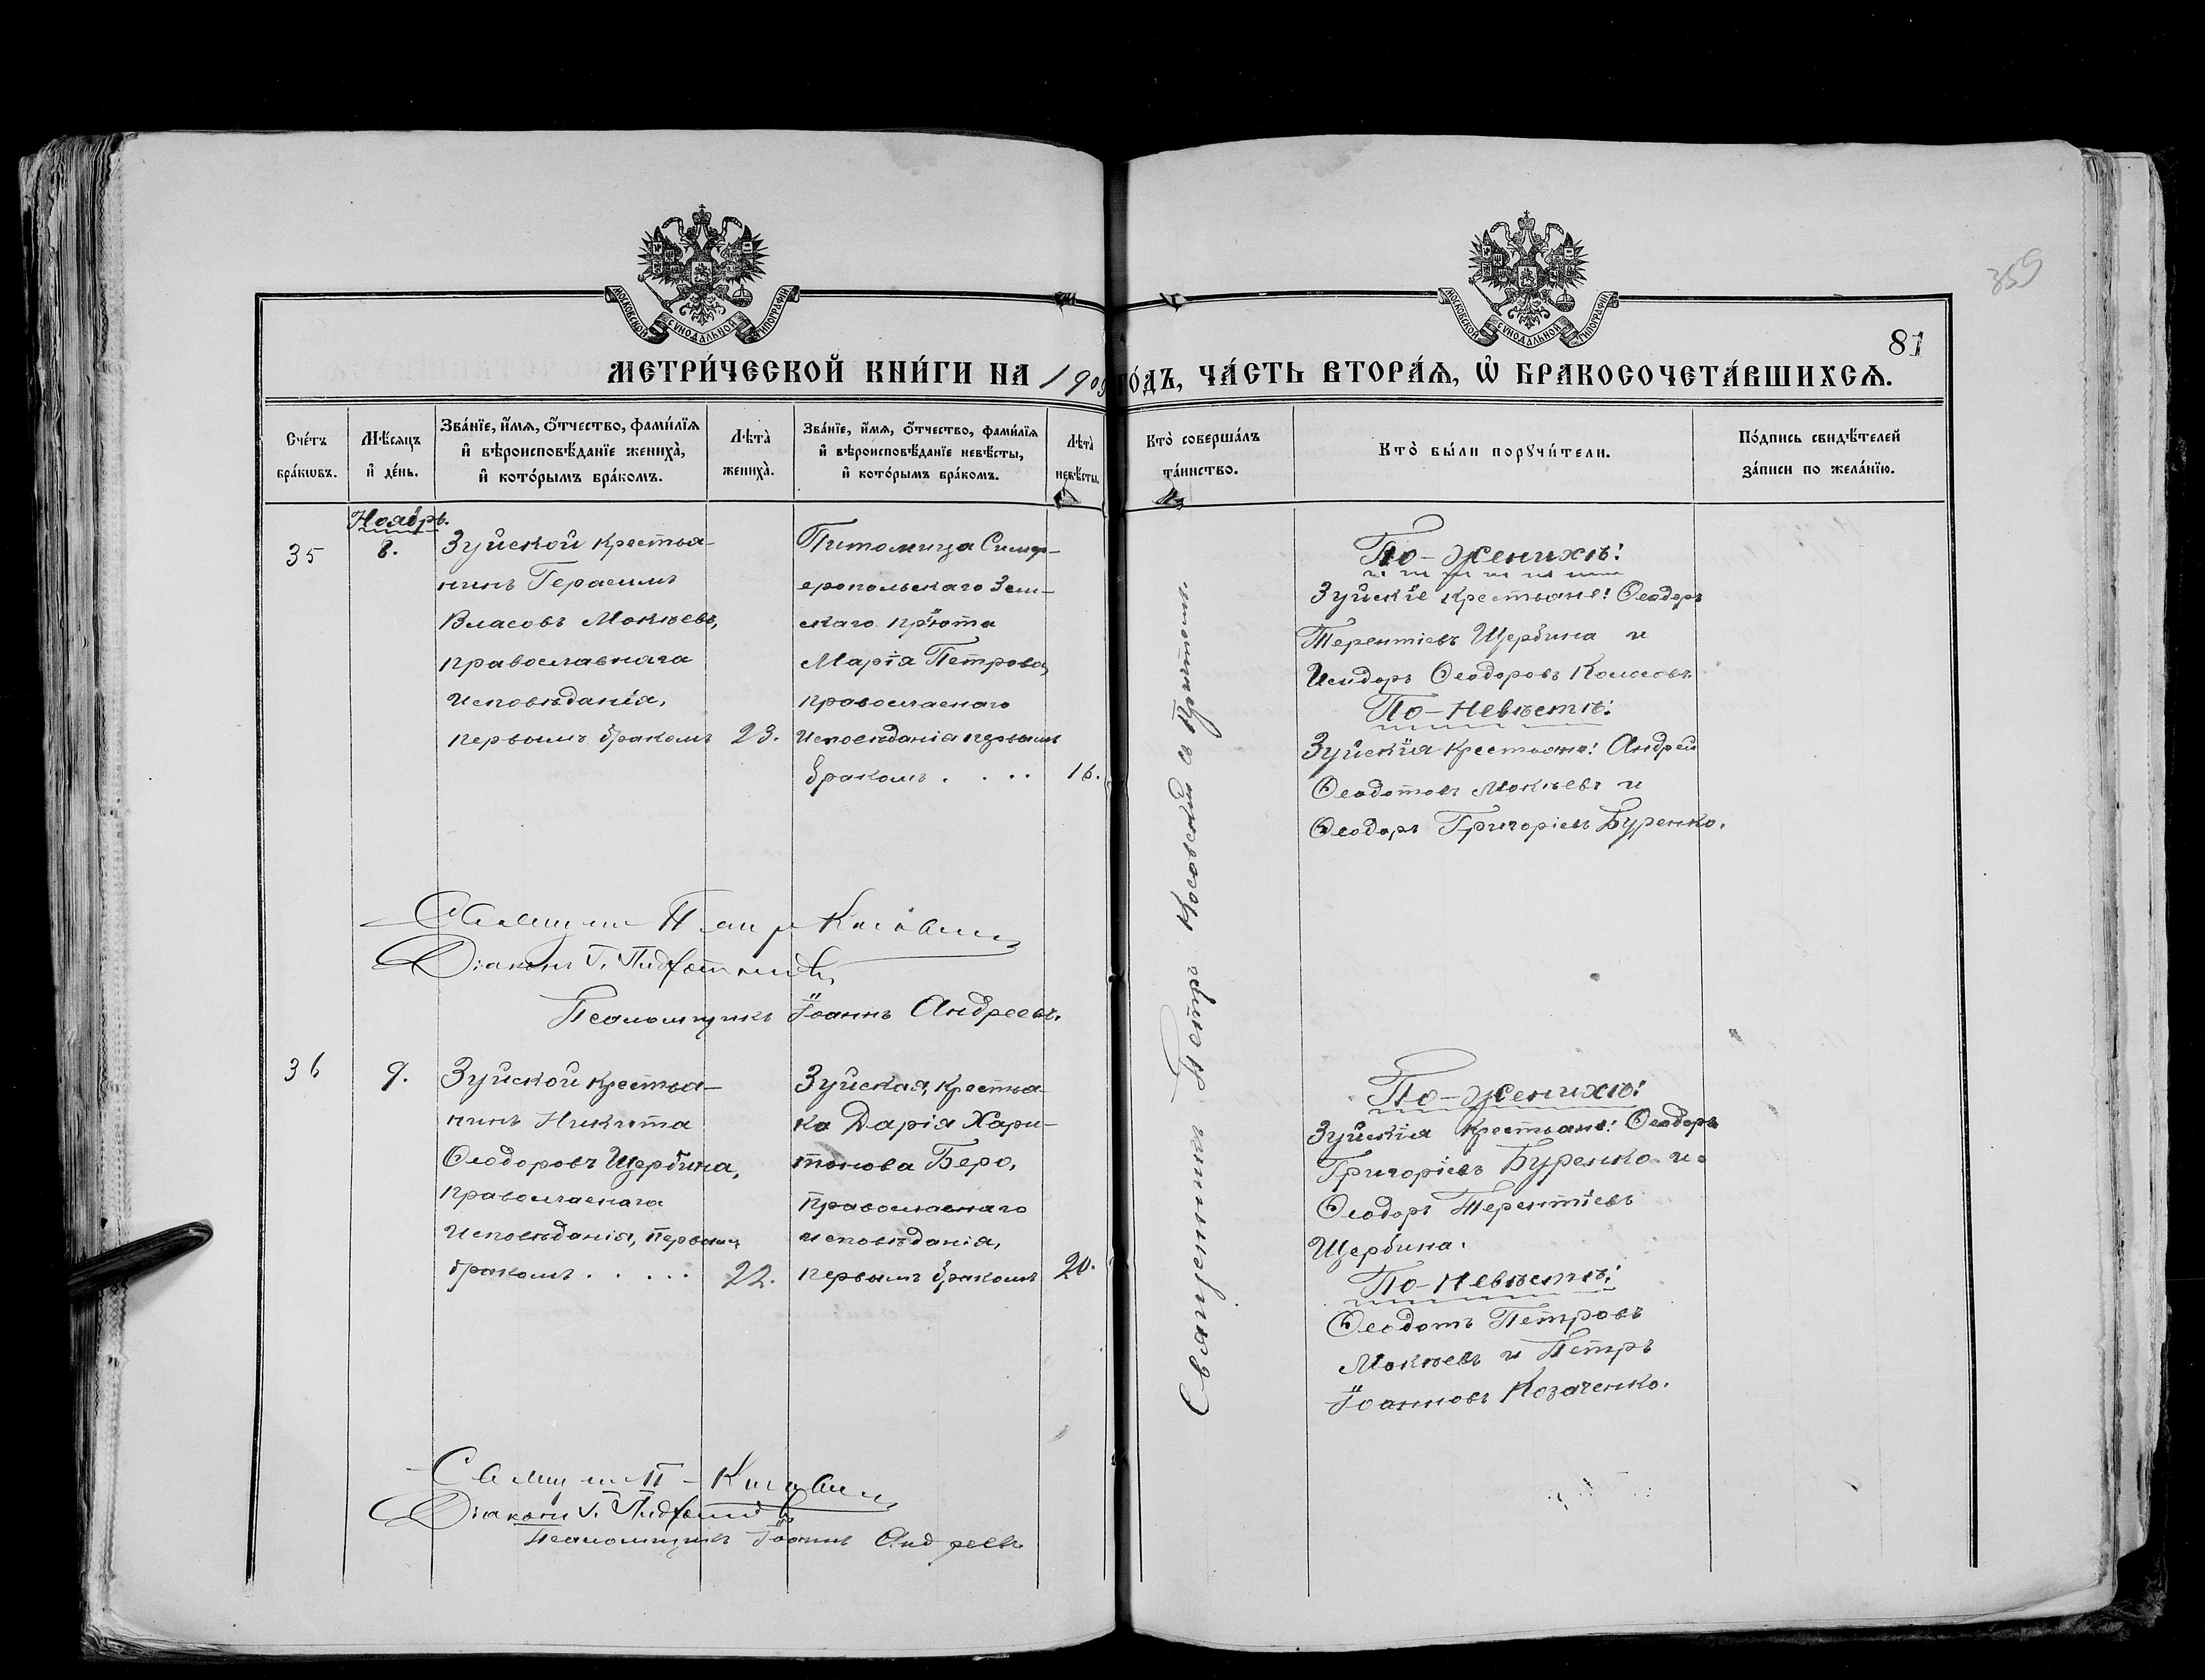 359
МОСКОВСКОЙ СѴНОДАЛЬНОЙ ТИПОГРАФІИ
МОСКОВСКОЙ СѴНОДАЛЬНОЙ ТИПОГРАФІИ
81
МЕТРИ́ЧЕСКОЙ КНИ́ГИ НА 1909 ГО́ДЪ, ЧА́СТЬ ВТОРА́Ѧ, Ѡ҆ БРАКОСОЧЕТА́ВШИХСѦ.
Сче́тъ бра́кѡвъ.
Мѣ́сѧцъ и҆ де́нь.
Зва́нїе, и҆́мѧ, ѻ҆́тчество, фами́лїѧ и҆ вѣроисповѣ́данїе жениха̀, и҆ кото́рымъ бра́комъ.
Лѣта̀ жениха̀.
Зва́нїе, и҆́мѧ, ѻ҆́тчество, фами́лїѧ и҆ вѣроисповѣ́данїе невѣ́сты, и҆ кото́рымъ бра́комъ.
Лѣта̀ невѣ́сты.
Кто̀ соверша́лъ та́инство.
Кто̀ бы́ли порꙋчи́тели.
По́дпись свидѣ́телей за́писи по жела́нїю.
Ноябрь.
35
8.
Зуйской крестья-
нинъ Герасимъ
Власовъ Мокѣевъ,
православнаго
исповѣданія,
первымъ бракомъ
23.
Питомица Симф-
еропольскаго Зем-
скаго пріюта
Марія Петрова,
православнаго
исповѣданія первымъ
бракомъ . . . .
16.
Священникъ Петръ Косовскій съ причтомъ.
По-женихѣ:
Зуйскіе крестьяне: Ѳеодоръ
Терентіевъ Щербина и
Исидоръ Ѳеодоровъ
По-Невѣстѣ:
Зуйскія крестьяне: Андрей
Ѳеодотовъ Мокѣевъ и
Ѳеодоръ Григоріевъ Буренко.
Петръ
Діаконъ
Псаломщикъ Іоаннъ Андреевъ.
36
9.
Зуйской крестья-
нинъ Никита
Ѳеодоровъ Щербина,
православнаго
исповѣданія, первымъ
бракомъ . . . . .
22.
Зуйская, крестья-
ка Дарія Хари-
тонова Беро,
православнаго
исповѣданія,
первымъ бракомъ
20.
По-женихѣ:
Зуйскія крестьяне: Ѳеодоръ
Григоріевъ Буренко и
Ѳеодоръ Терентіевъ
Щербина.
По-Невѣстѣ:
Ѳеодотъ Петровъ
Мокѣевъ и Петръ
Іоанновъ Козаченко.
Діаконъ
Псаломщикъ Іоаннъ Андреевъ